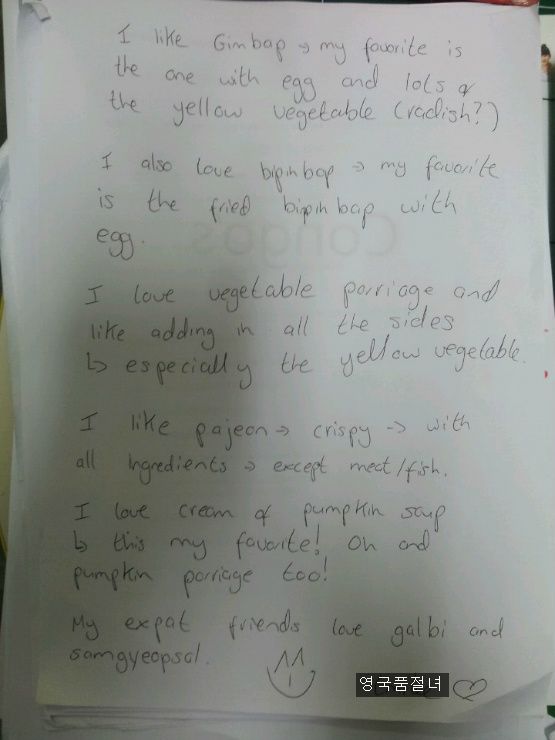 I like Gimbap → my favorite is
the one with egg and lots of
the yellow vegetable (radish?)
I also love bipinbap → my favorite
is the fried bipinbap with
egg.
I love vegetable porriage and
like adding in all the sides
↳ especially the yellow vegetable.
I like pajeon → crispy → with
all ingredients → except meat/fish.
I love cream of pumpkin soup
↳ this my favorite! Oh and
pumpkin porriage too!
My expat friends love galbi and
samgyeopsal.
영국품절녀